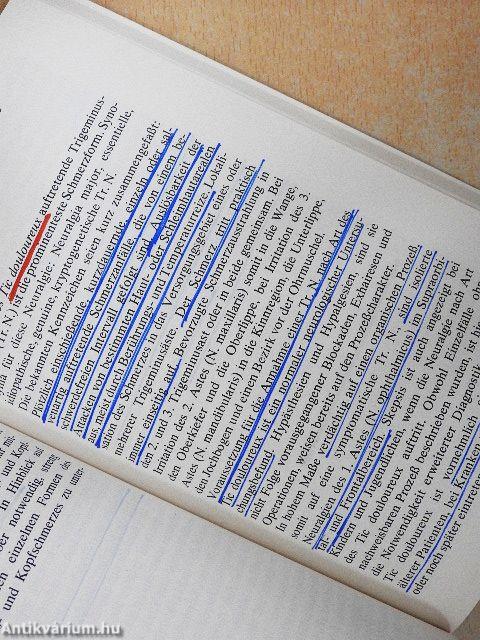 Tic douloureux auftretende Trigeminus-
Tr. N.) ist die prominenteste Schmerzform. Syno-
für diese Neuralgie, Neuralgia major, essentielle,
idiopathische, genuine, kryptogenetische Tr. N.
Die bekannten Kennzeichen seien kurz zusammengefaßt:
Plötzlich einschießende, kurzdauernde, einzeln oder sal-
venartig auftretende Schmerzanfälle, die von einem be-
schwerdefreien Intervall gefolgt sind. Auslösbarkeit der
Attacken von bestimmten Haut- oder Schleimhautarealen
aus meist durch Berührungs- und Temperaturreize. Lokali-
sation des Schmerzes in das Versorgungsgebiet eines oder
mehrerer Trigeminusäste. Der Schmerz tritt praktisch
immer einseitig auf. Bevorzugte Schmerzausstrahlung in
den 2. und 3. Trigeminusast oder in beide gemeinsam. Bei
Irritation des 2. Astes (N. maxillaris) somit in die Wange,
den Oberkiefer und die Oberlippe, bei Irritation des 3.
Astes (N. mandibularis) in die Kinnregion, die Unterlippe,
den Jochbogen und einen Bezirk vor der Ohrmuschel.
Voraussetzung für die Annahme einer Tr. N. nach Art des
Tic douloureux ist ein normaler neurologischer Untersu-
chungsbefund. Hypästhesien und Hypalgesien, sind sie
nicht Folge vorausgegangener Blockaden, Exhairesen und
Operationen, weisen bereits auf den Prozeßcharakter.
In hohem Maße verdächtig auf einen organischen Prozeß
somit auf eine symptomatische Tr. N., sind isolierte
Neuralgien des 1. Astes (N. ophthalmicus) im Supraorbi-
tal- und Frontalbereich. Skepsis ist auch angezeigt bei
Kindern und Jugendlichen, wenn die Neuralgie nach Art
des Tic douloureux auftritt. Obwohl Einzelfälle ohne
nachweisbaren Prozeß beschrieben wurden, ist hier
die Notwendigkeit erweiterter Diagnostik
Tic douloureux ist vornehmlich
älterer Patienten bei Kranken
oder noch später eintreten
und Kopf-
in Hinblick auf
notwendig, streng
einzelnen Formen des
und Kopfschmerzes zu unter-
Antikvárium.hu